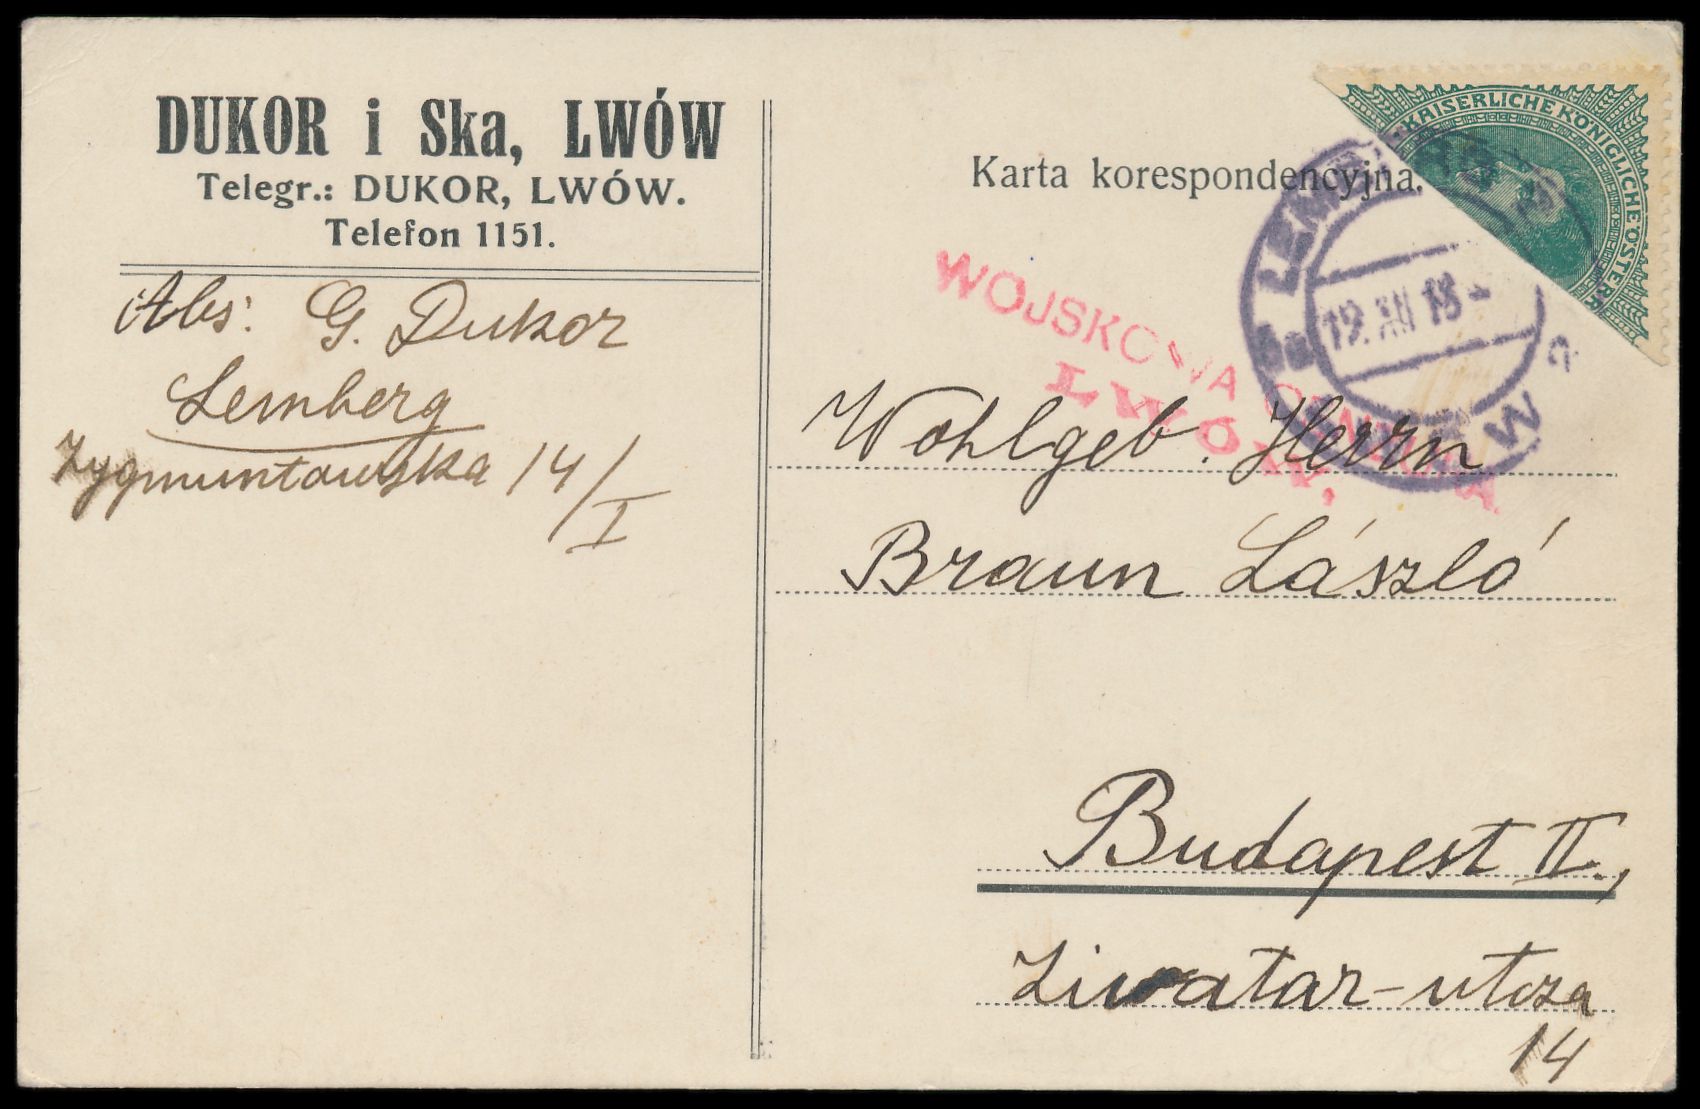 DUKOR i Ska, LWÓW
Telegr.: DUKOR, LWÓW.
Telefon 1151.
Abs: G. Dukor
Lemberg
Zygmuntowska 14/I
Karta korespondencyjna.
KAISERLICHE KÖNIGLICHE ÖSTERR
19. XII 18
WOJSKOWA CENZURA
LWÓW.
Wohlgeb. Herrn
Braun László
Budapest II.,
Zivatar-utcza
14